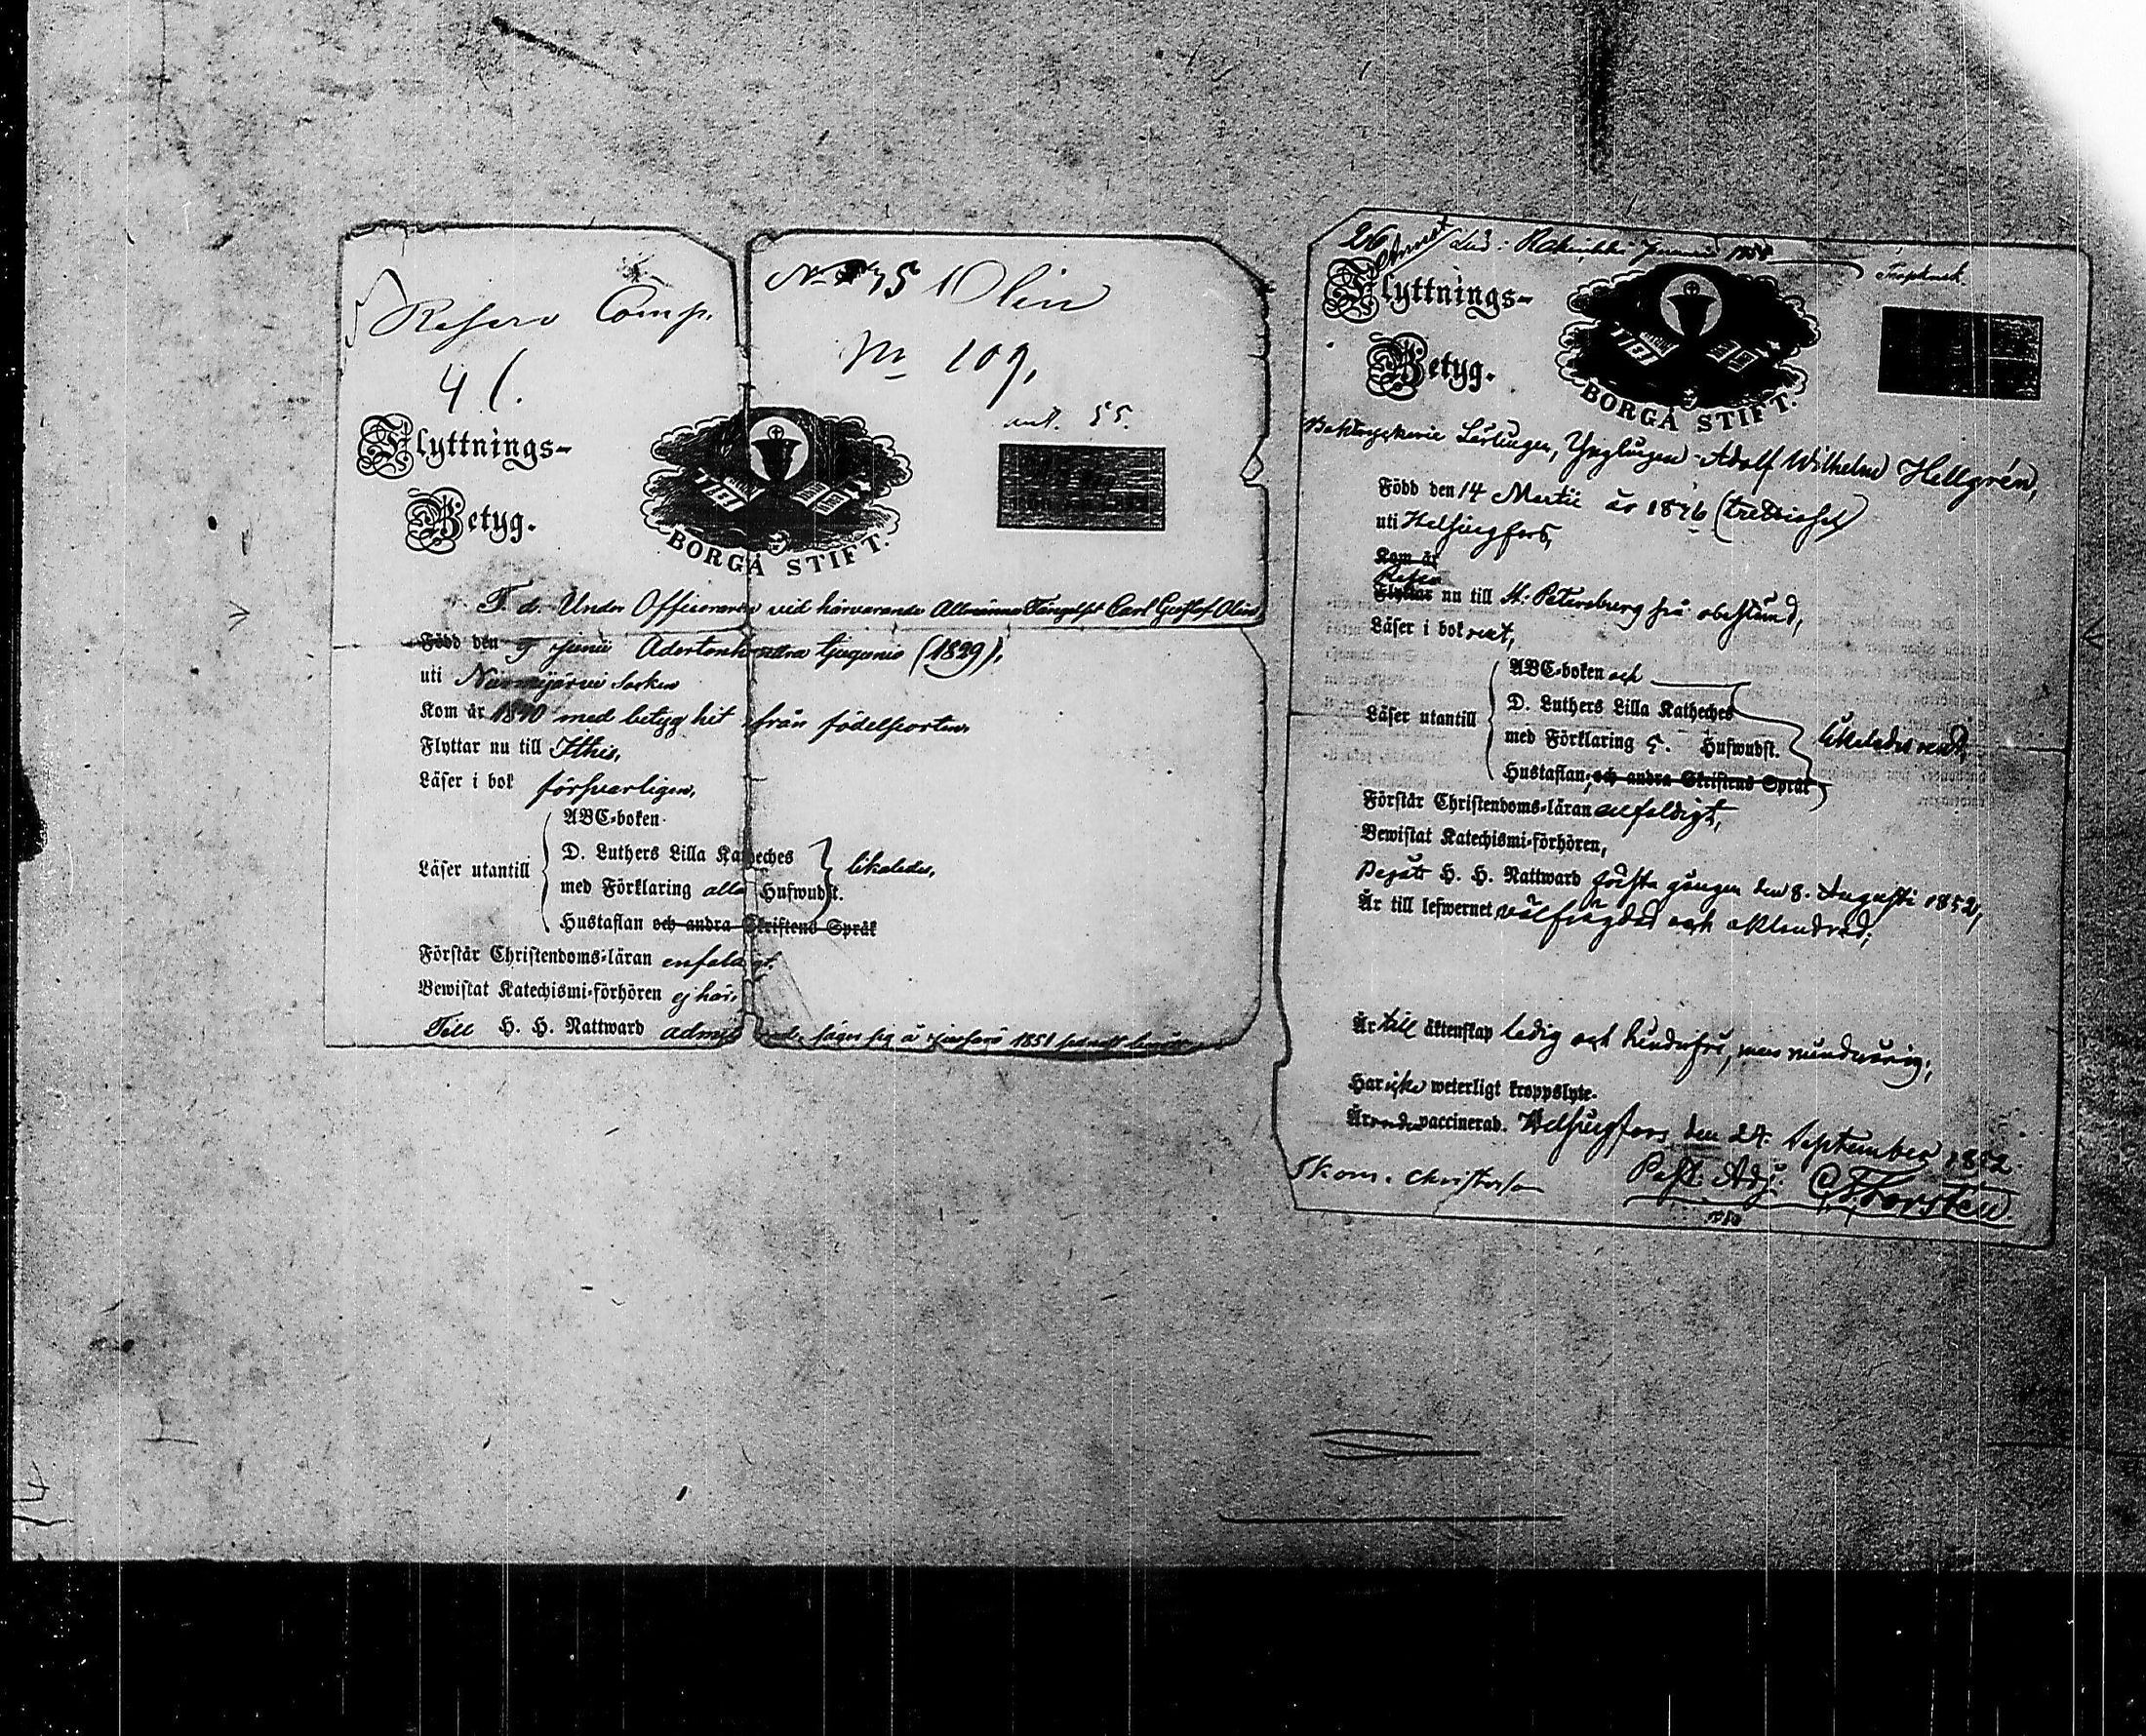 Reserv Comp.
41.
No 75 Olin
No 109.
ank. 55.
Flyttnings-
Betyg.
BORGÅ STIFT.
F. d. Under Officeraren vid härvarande Allmänna Fängelset Carl Gustaf Olin
Född den 9 Junii Adertonhundra tjugunio (1829),
uti Nurmijärvi Socken
Kom år 1840 med betyg hit från födelseorten.
Flyttar nu till Ithis,
Läser i bok försvarligen,
ABC-boken
D. Luthers Lilla Katheches
Läser utantill
likaledes,
med Förklaring alla Hufwudst.
Hustaflan och andra Skriftens Språk
Förstår Christendoms-läran enfaldigt.
Bewistat Katechismi-förhören ej här,
Till H. H. Nattward säger sig å 1851
26
Flyttnings-
Betyg.
BORGÅ STIFT.
Boktryckerie Lärlingen, Ynglingen Adolf Wilhelm Hellgrén,
Född den 14 Martii år 1836
uti Helsingfors,
Kom år
Reser
Flyttar nu till St. Petersburg på obestämd,
Läser i bok rent,
ABC-boken och
D. Luthers Lilla Katheches
Läser utantill
likaledes rent,
med Förklaring 5. Hufwudst.
Hustaflan, och andra Skriftens Språk
Förstår Christendoms-läran enfaldigt,
Bewistat Katechismi-förhören,
Begått H. H. Nattward första gången den 8. Augusti 1852,
Är till lefwernet välfrägdad och oklandrad,
Är till äktenskap ledig och hinderfri, men minderårig,
Har icke weterligt kroppslyte.
Är vaccinerad. Helsingfors den 24. September 1852
Past. Adj. Forstén
Skom. Christerson